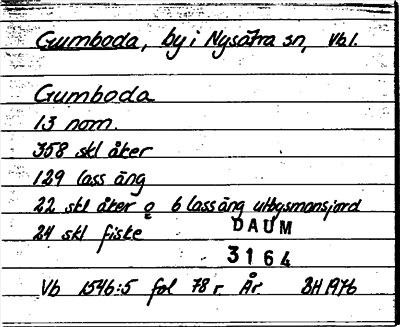 Gumboda, by i Nysätra sn, Vbl.
Gumboda
13 nom.
358 skl åker
129 lass äng
22 skl åker o 6 lass äng utbysmansjord
24 skl fiske
DAUM
3164
Vb 1546:5 fol 78 r År BH 1976